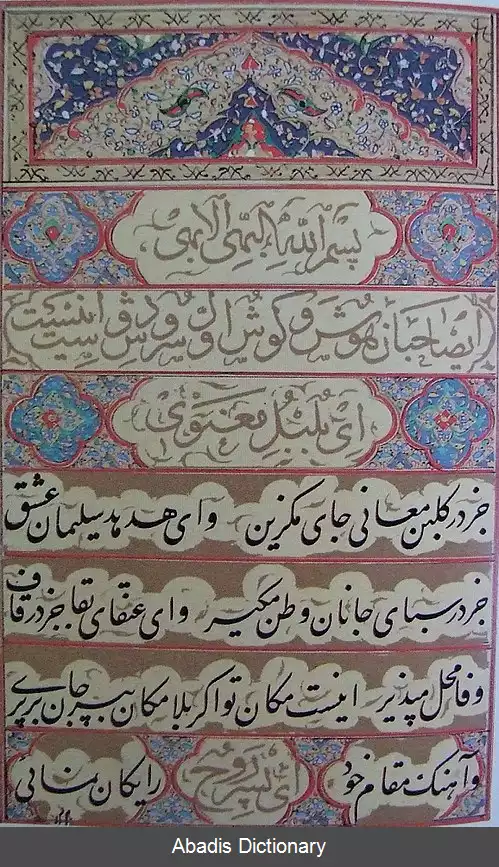 بسم الله البهی الابهی
ایصاحبان هوش و کوش اول سروش دوست اینست
ای بلبل معنوی
جز در کلبن معانی جای مکزین و ای هدهد سلیمان عشق
جز در سبای جانان وطن مکیر و ای عنقای بقا جز در قاف
وفا محل مپذیر اینست مکان تو اکر بلامکان بپر جان بر پری
و آهنک مقام خود رایکان نمائی
ای پسر روح
Abadis Dictionary